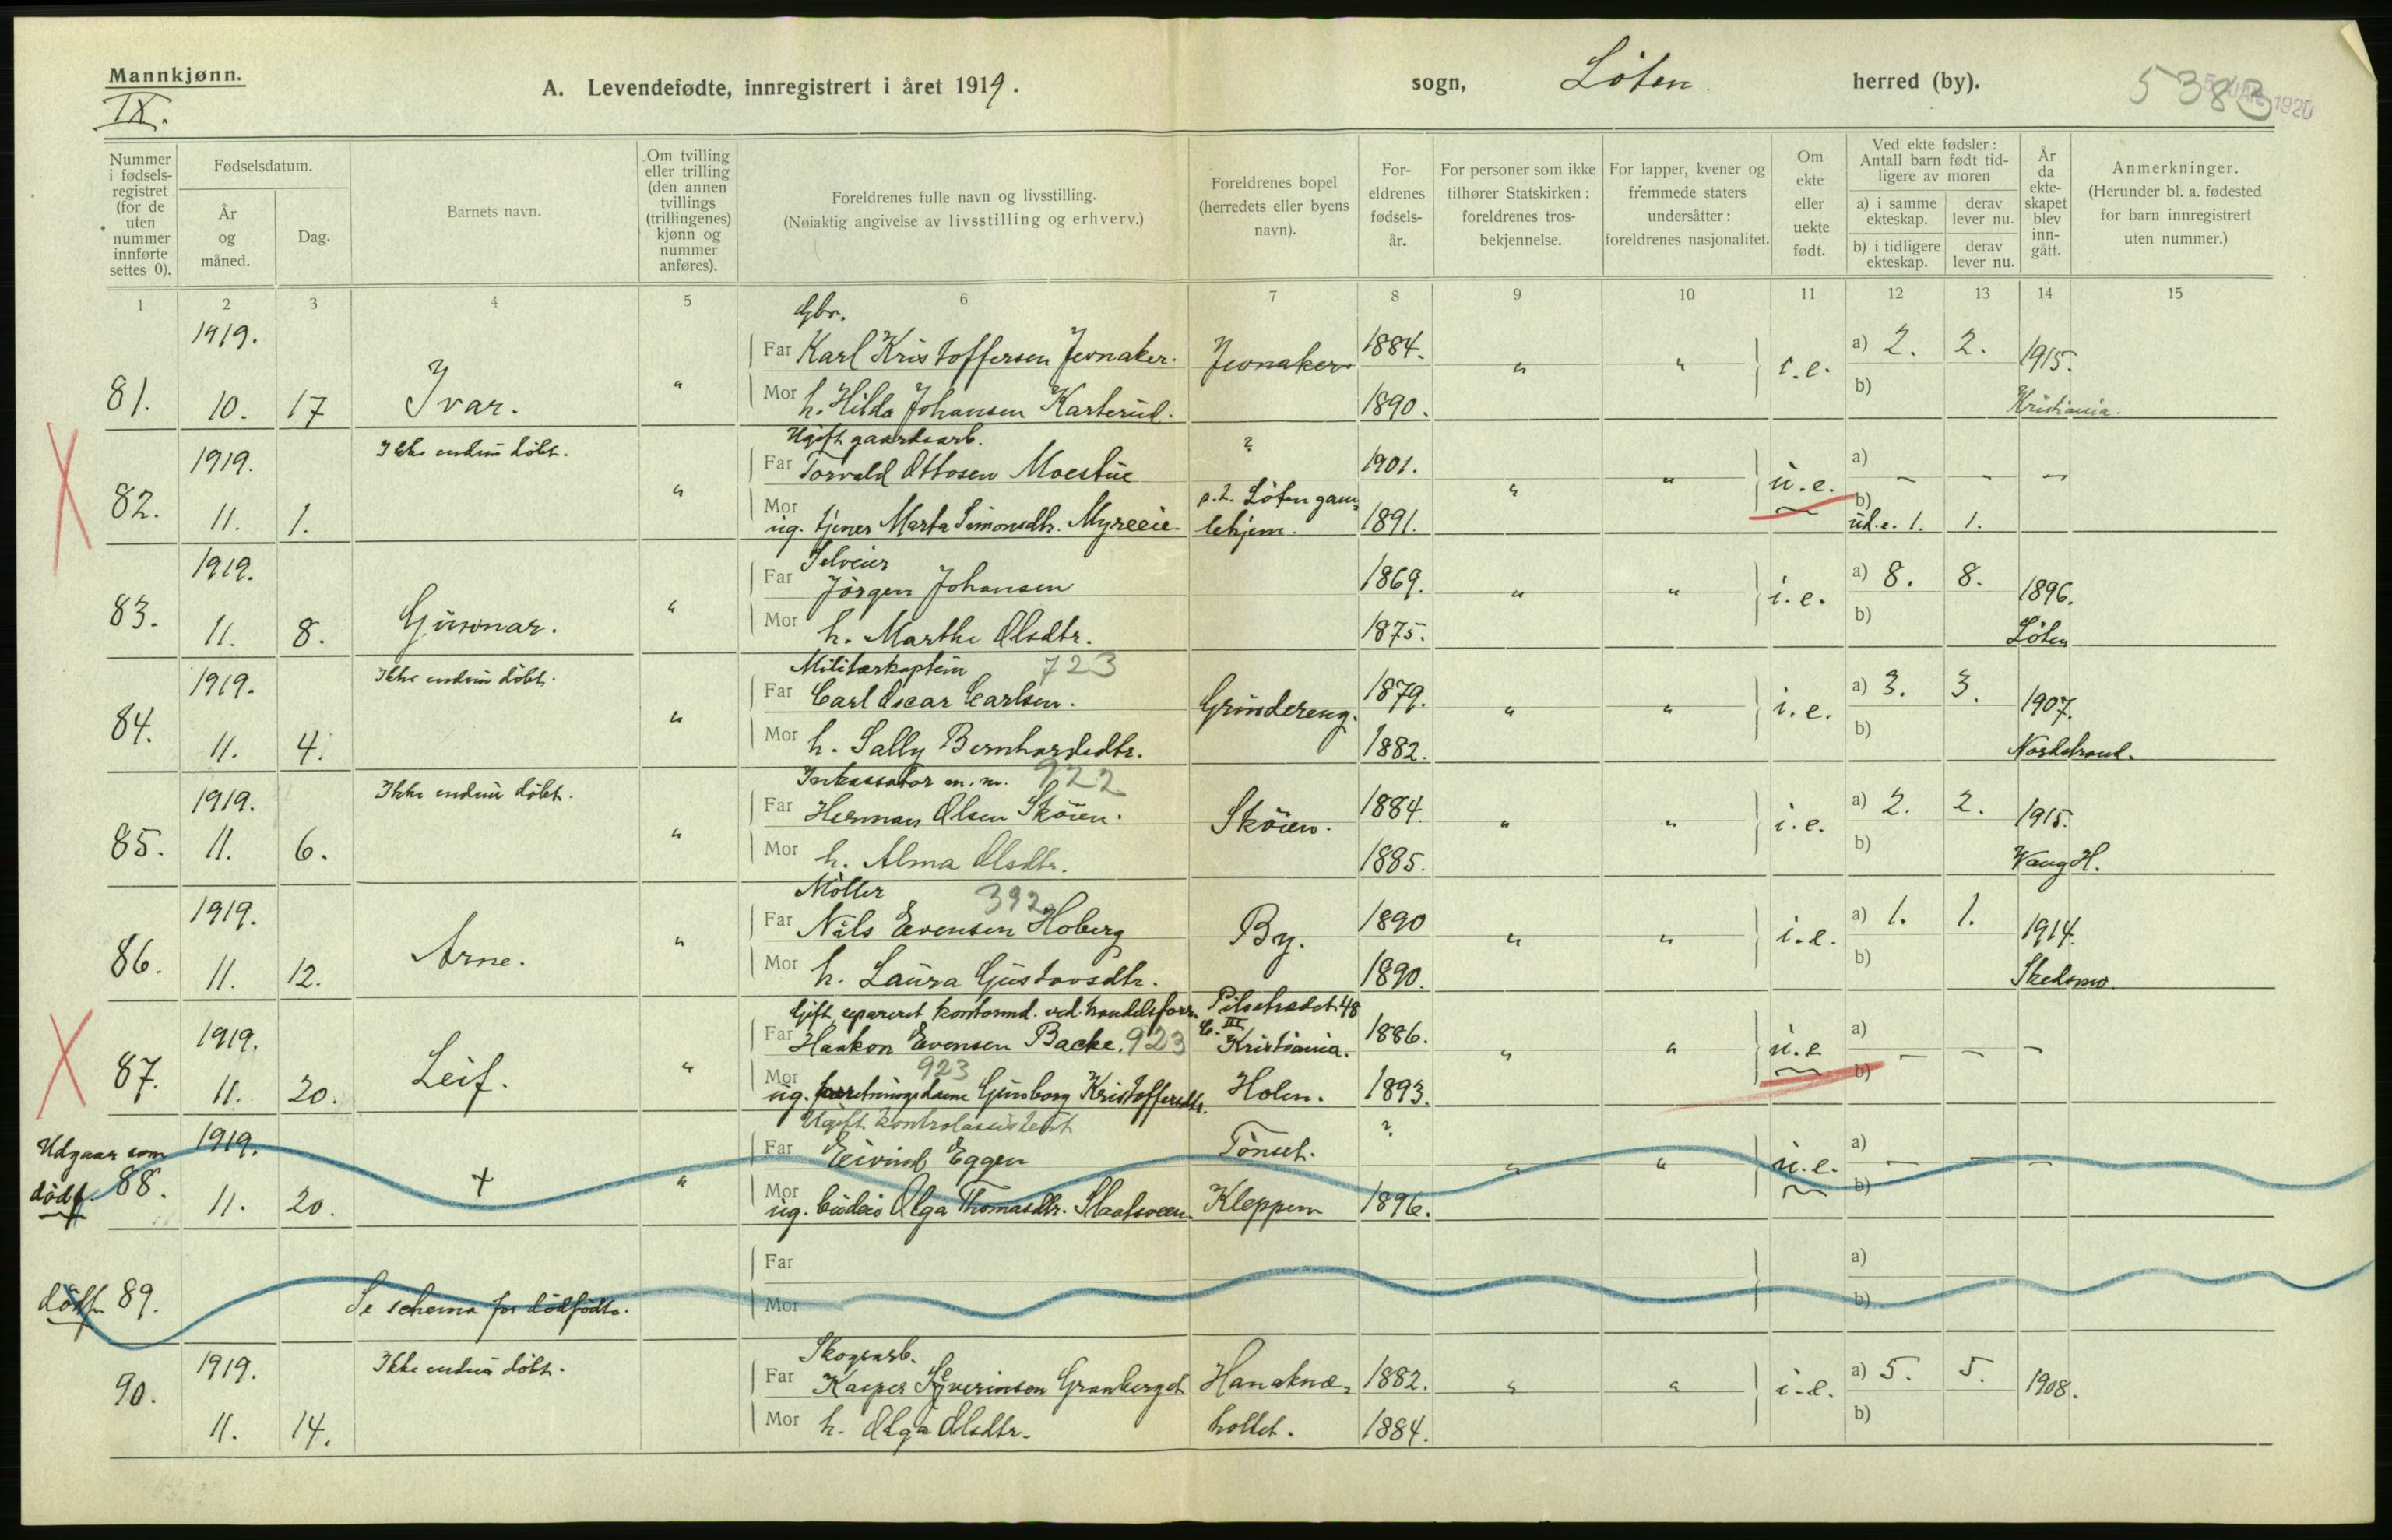 Mannkjønn.
IX.
A. Levendefødte, innregistrert i året 1919.
sogn, Löten herred (by).
5383
1920
Nummer i fødsels-registret (for de uten nummer innførte settes 0).
Fødselsdatum.
År og måned.
Dag.
Barnets navn.
Om tvilling eller trilling (den annen tvillings (trillingenes) kjønn og nummer anføres).
Foreldrenes fulle navn og livsstilling.
(Nøiaktig angivelse av livsstilling og erhverv.)
Foreldrenes bopel (herredets eller byens navn).
For-eldrenes fødsels-år.
For personer som ikke tilhører Statskirken: foreldrenes tros-bekjennelse.
For lapper, kvener og fremmede staters undersåtter: foreldrenes nasjonalitet.
Om ekte eller uekte født.
Ved ekte fødsler: Antall barn født tid-ligere av moren
a) i samme ekteskap.
derav lever nu.
b) i tidligere ekteskap.
derav lever nu.
År da ekte-skapet blev inn-gått.
Anmerkninger.
(Herunder bl. a. fødested for barn innregistrert uten nummer.)
1 2 3 4 5 6 7 8 9 10 11 12 13 14 15
Gbr.
1919.
Far Karl Kristoffersen Jevnaker. Jevnaker 1884. " " i.e. a) 2. 2. 1915.
81. 10. 17 Ivar. " Mor h. Hilda Johansen Karterud. 1890. b) Kristiania.
Ikke endnu döbt. Ugift gaardsarb. ?
1919. Far Torvald Ottosen Moestue 1901. a) – – –
82. 11. 1. " Mor ug. tjener Marta Simonsdtr. Myreeie p.t. Löten gam=lehjem. 1891. " " u.e. b) ud.e. 1. 1.
Selveier
1919. Far Jörgen Johansen 1869. " " i.e. a) 8. 8. 1896.
83. 11. 8. Gunnar. " Mor h. Marthe Olsdtr. 1875. b) Löten
Militærkaptein 723
1919. Ikke endnu döbt. Far Carl Oscar Carlsen. Grindereng. 1879. " " i.e. a) 3. 3. 1907.
84. 11. 4. " Mor h. Sally Bernhardsdtr. 1882. b) Nordstrand.
Inkassator m.m. 922
1919. Ikke endnu döbt. Far Herman Olsen Sköien. Sköien. 1884. " " i.e. a) 2. 2. 1915.
85. 11. 6. " Mor h. Alma Olsdtr. 1885. b) Vang H.
Möller 392
1919. Far Nils Evensen Hoberg By. 1890 " " i.e. a) 1. 1. 1914.
86. 11. 12. Arne. " Mor h. Laura Gustavsdtr. 1890. b) Skedsmo
Gift, separeret kontormd. ved handelsforr. Pilestrædet 48 C. III
1919. Far Haakon Evensen Backe. 923 Kristiania. 1886. " " u.e. a) – – –
923
87. 11. 20. Leif. " Mor ug. forretningsdame Gunborg Kristoffersdtr. Holen. 1893. b)
Ugift kontrolassistent ?
Udgaar som dödf.
1919. Far Eivind Eggen Tönset. " " u.e. a) – – –
88. 11. 20. + " Mor ug. Olga Thomasdtr. Slaatsveen. Kleppen 1896. b)
Far a)
dödf. 89. Se schema for dödfödte. Mor b)
Skogsarb.
1919. Ikke endnu döbt. Far Kasper Syverinson Granberget Hanaknæ= 1882. " " i.e. a) 5. 5. 1908.
90. 11. 14. Mor h. Olga Olsdtr. holtet. 1884. b)